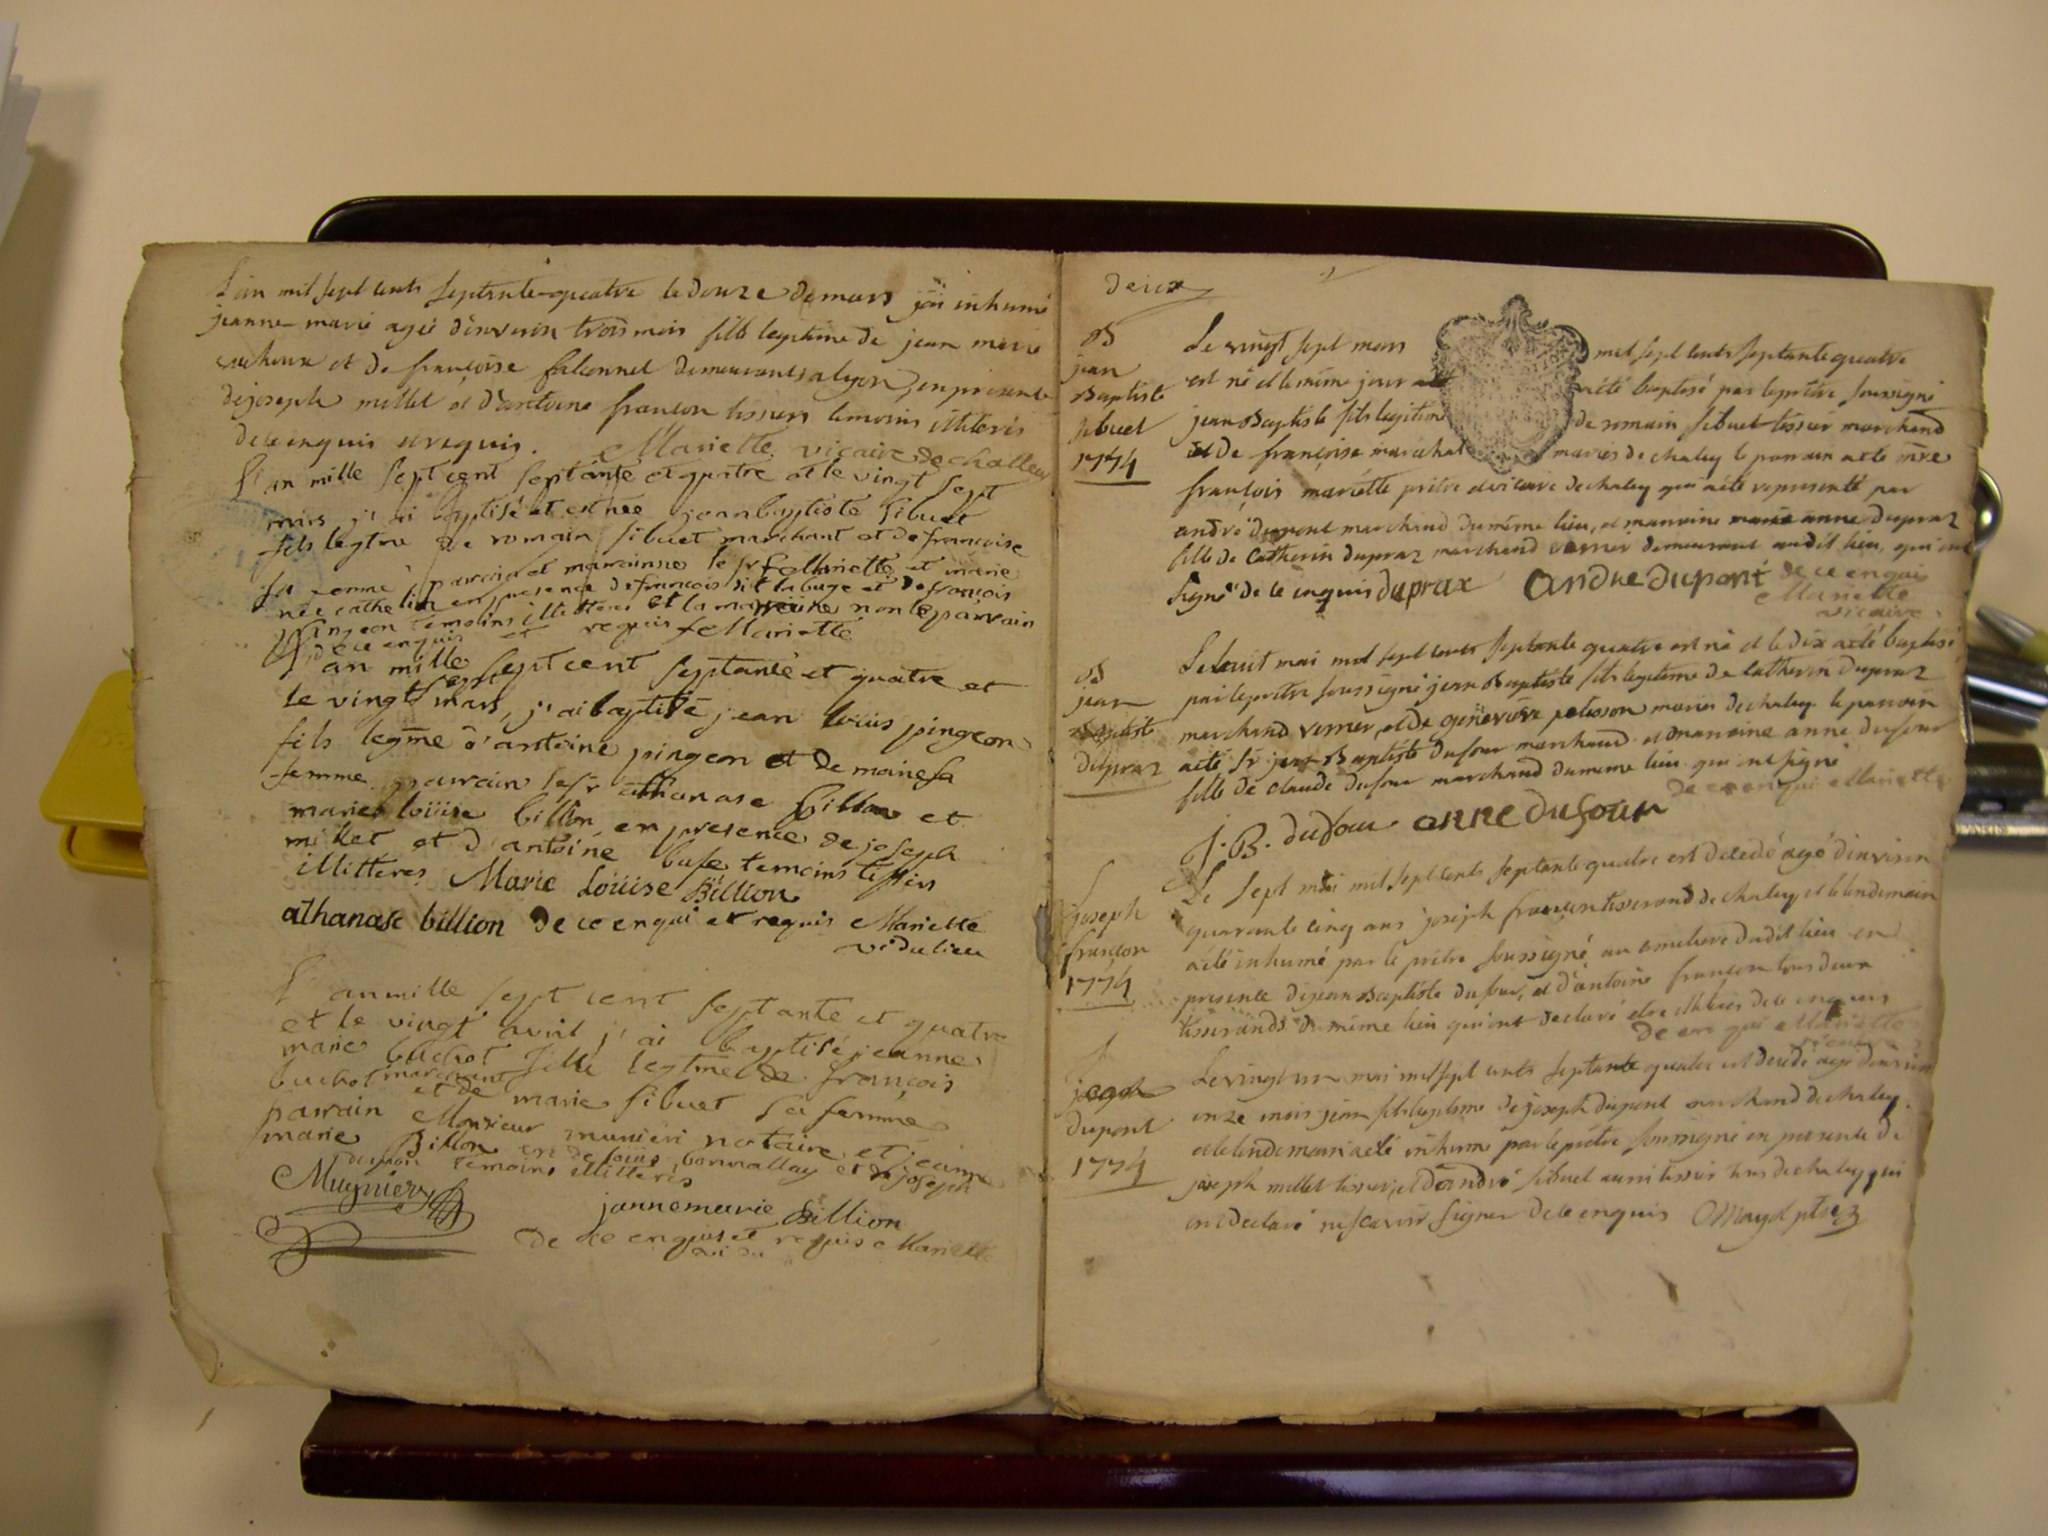 L'an mil sept cents septante-quatre le douze de mars j'ai inhumé
jeanne-marie agée d'environ trois mois fille legitime de jean marie
et de françoise falconnet demeurants a lyon, en présence
de joseph millet et d'antoine françon tissiers temoins illiterés
de ce enquis et requis. Mariette vicaire de challey
L'an mille sept cent septante et quatre et le vingt sept
mars j'ai baptisé et est née jean baptiste sibuet
fils legtme de romain sibuet marchant et de francoise
sa femme parain et marainne le sr f Mariette et marie
née cathelin en presence de francois dit labuge et de francois
pingeon temoins illitteres et la marreine non le parrain
de ce enquis et requis f Mariette
L'an mille sept cent septante et quatre et
le vingt sept mars, j'ai baptisé jean louis pingeon
fils legme d'antoine pingeon et de
femme parrain le sr athanase billion et
marie loüise billion en presence de joseph
millet et d'antoine buse temoins tissiers
illitteres Marie Loüise Billion
athanase billion de ce enqui et requis Mariette
vic du lieu
L'an mille sept cent septante et quatre
et le vingt avril j'ai baptisé jeanne
marie buchot fille legtme de françois
buchot marchant et de marie sibuet sa femme
parrain Monsieur munieri notaire et jeanne
marie Billion en de louis bonnallay et de joseph
dupon temoins illitterés
Mugniery
jannemarie Billion
de ce enquis et requis Mariette
vic du
deux
B
jean
Baptiste
sibuet
1774
Le vingt sept mars mil sept cents septante quatre
est né et le même jour a été baptisé par le prêtre soussigné
jean Baptiste fils legitime de romain sibuet tissier marchand
et de françoise maréchal mariés de chaley le parrain a été mre
françois mariette prêtre et vicaire de chaley qui a été representé par
andré dupont marchand du même lieu, et marraine marie anne dupraz
fille de Catherin dupraz marchand verrier demeurant audit lieu, qui ont
signé de ce enquis duprax andre dupont de ce enquis
Mariette
vicaire
B
jean
Baptiste
dupraz
Le huit mai mil sept cents septante quatre est né et le dix a été baptisé
par le prêtre soussigné jean Baptiste fils legitime de Catherin dupraz
marchand verrier et de genevieve pelisson mariés de chaley le parrain
a été Sr jean Baptiste dufour marchand et marraine anne dufour
fille de claude dufour marchand du meme lieu qui ont signé
de ce enqui Mariette
J. B. dufour anne dufour
S
joseph
françon
1774
Le sept mai mil sept cents septante quatre est decedé agé d'environ
quarante cinq ans joseph françon tisserand de chaley et le lendemain
a été inhumé par le prêtre soussigné au cimetiere dudit lieu en
presence de jean Baptiste dufour, et d'antoine françon tous deux
tisserands du même lieu qui ont declaré etre illiterés de ce enquis
de ce enqui Mariette
vicaire
S
joseph
dupont
1774
Le vingt un mai mil sept cents septante quatre est decedé agé d'environ
onze mois jean fils legitime de joseph dupont marchand de chaley
et le lendemain a été inhumé par le prêtre soussigné en presence de
joseph millet tissier, et d'andré sibuet aussi tissier tous de chaley qui
ont declaré ne scavoir signer de ce enquis